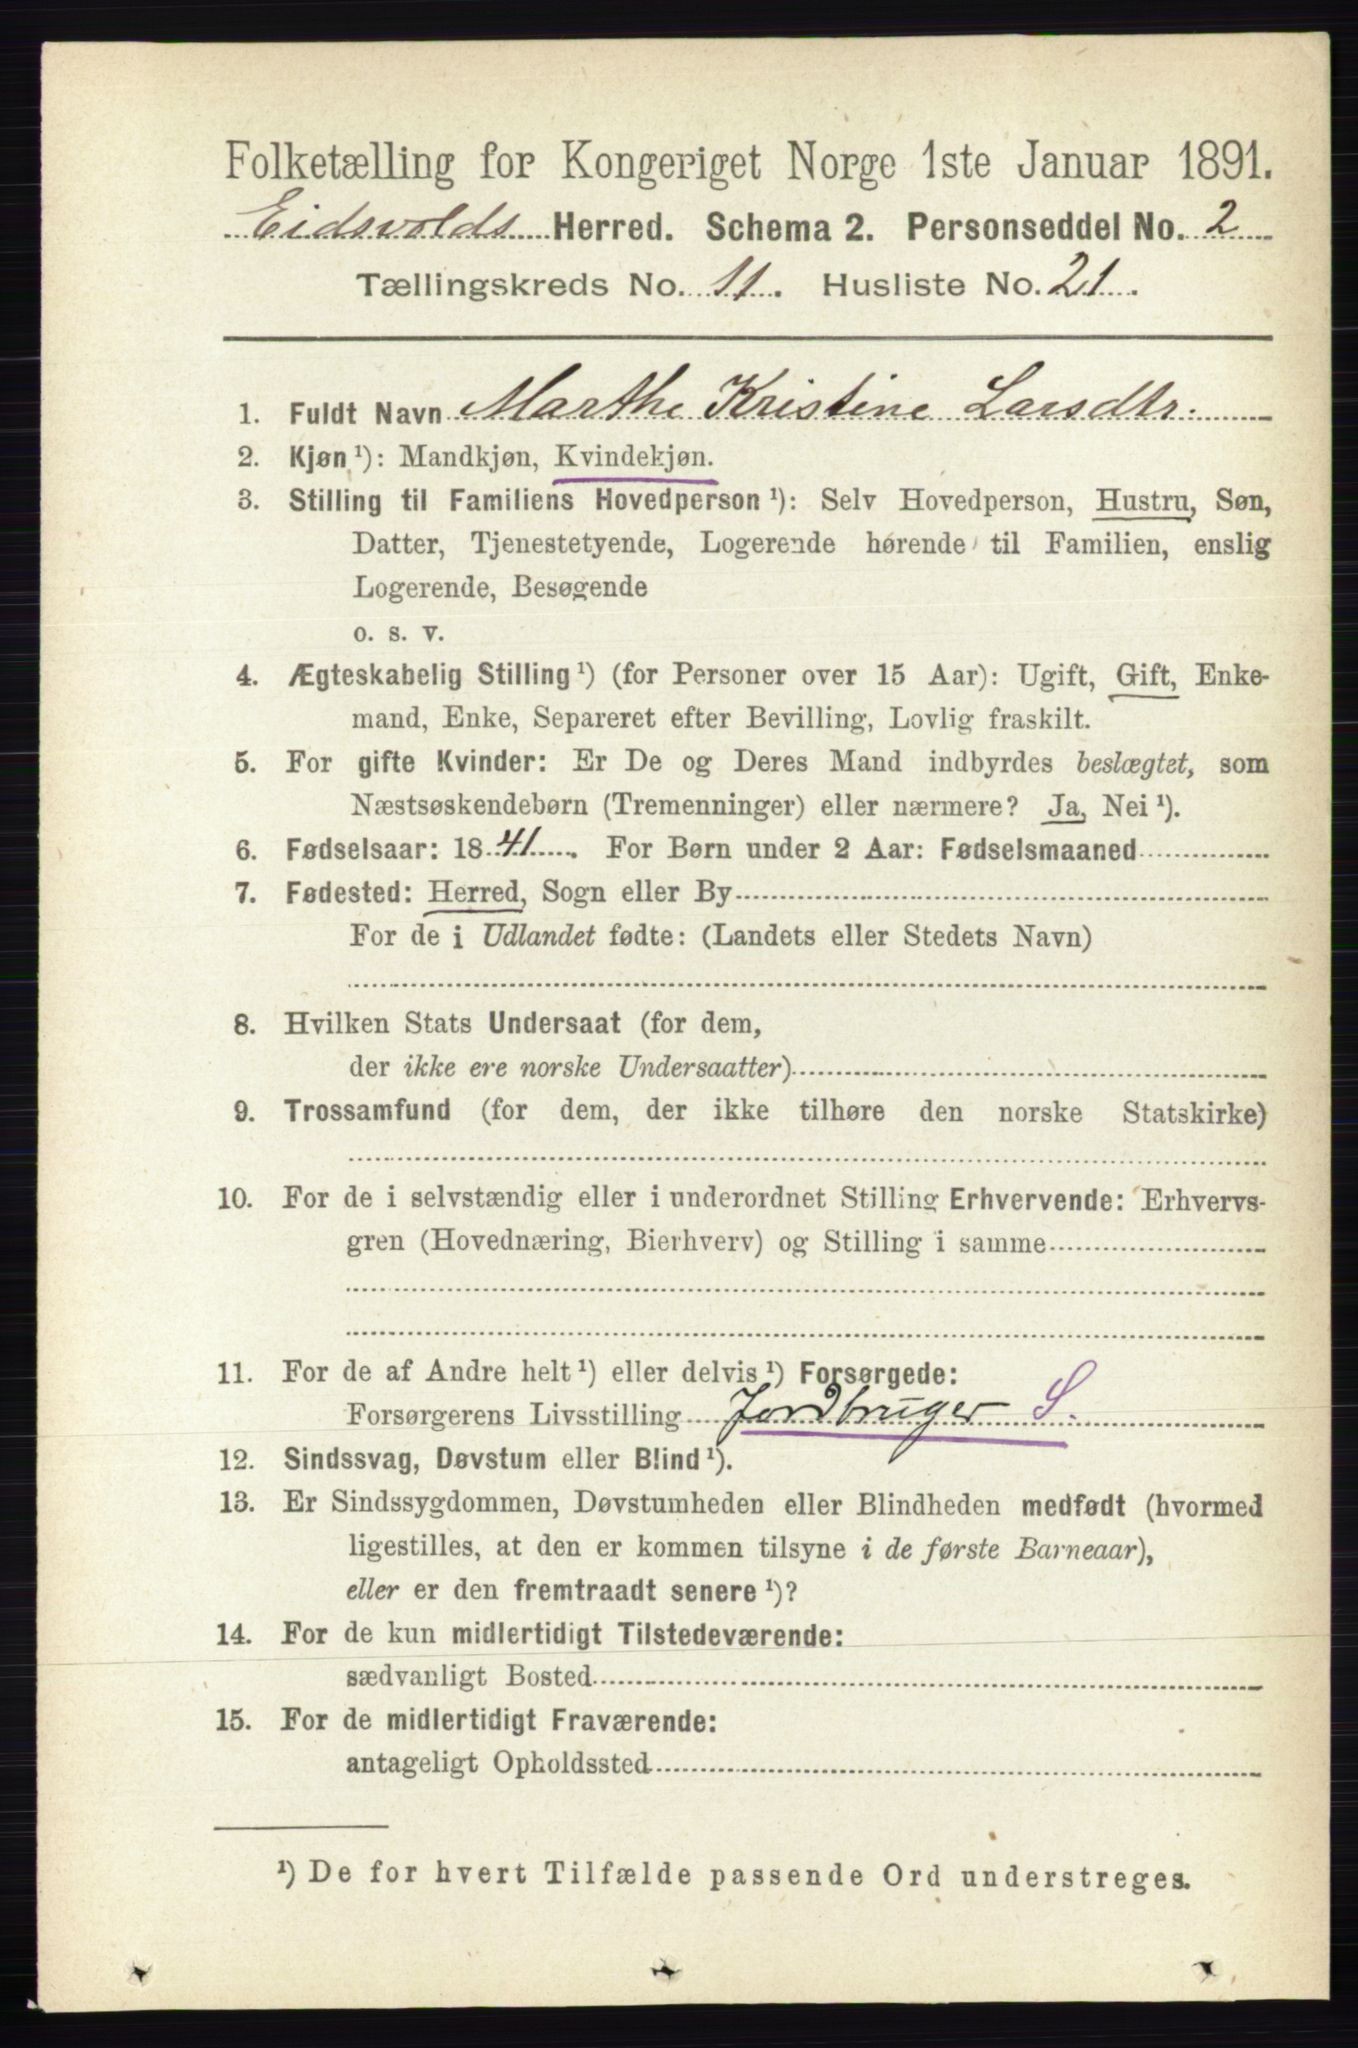 Folketælling for Kongeriget Norge 1ste Januar 1891.
Eidsvolds Herred. Schema 2. Personseddel No. 2
Tællingskreds No. 11. Husliste No. 21.
1. Fuldt Navn Marthe Kristine Larsdtr.
2. Kjøn ¹): Mandkjøn, Kvindekjøn.
3. Stilling til Familiens Hovedperson ¹): Selv Hovedperson, Hustru, Søn,
Datter, Tjenestetyende, Logerende hørende til Familien, enslig
Logerende, Besøgende
o. s. v.
4. Ægteskabelig Stilling ¹) (for Personer over 15 Aar): Ugift, Gift, Enke-
mand, Enke, Separeret efter Bevilling, Lovlig fraskilt.
5. For gifte Kvinder: Er De og Deres Mand indbyrdes beslægtet, som
Næstsøskendebørn (Tremenninger) eller nærmere? Ja, Nei ¹).
6. Fødselsaar: 1841. For Børn under 2 Aar: Fødselsmaaned
7. Fødested: Herred, Sogn eller By
For de i Udlandet fødte: (Landets eller Stedets Navn)
8. Hvilken Stats Undersaat (for dem,
der ikke ere norske Undersaatter)
9. Trossamfund (for dem, der ikke tilhøre den norske Statskirke)
10. For de i selvstændig eller i underordnet Stilling Erhvervende: Erhvervs-
gren (Hovednæring, Bierhverv) og Stilling i samme
11. For de af Andre helt ¹) eller delvis ¹) Forsørgede:
Forsørgerens Livsstilling Jordbruger S.
12. Sindssvag, Døvstum eller Blind ¹).
13. Er Sindssygdommen, Døvstumheden eller Blindheden medfødt (hvormed
ligestilles, at den er kommen tilsyne i de første Barneaar),
eller er den fremtraadt senere ¹)?
14. For de kun midlertidigt Tilstedeværende:
sædvanligt Bosted
15. For de midlertidigt Fraværende:
antageligt Opholdssted
¹) De for hvert Tilfælde passende Ord understreges.